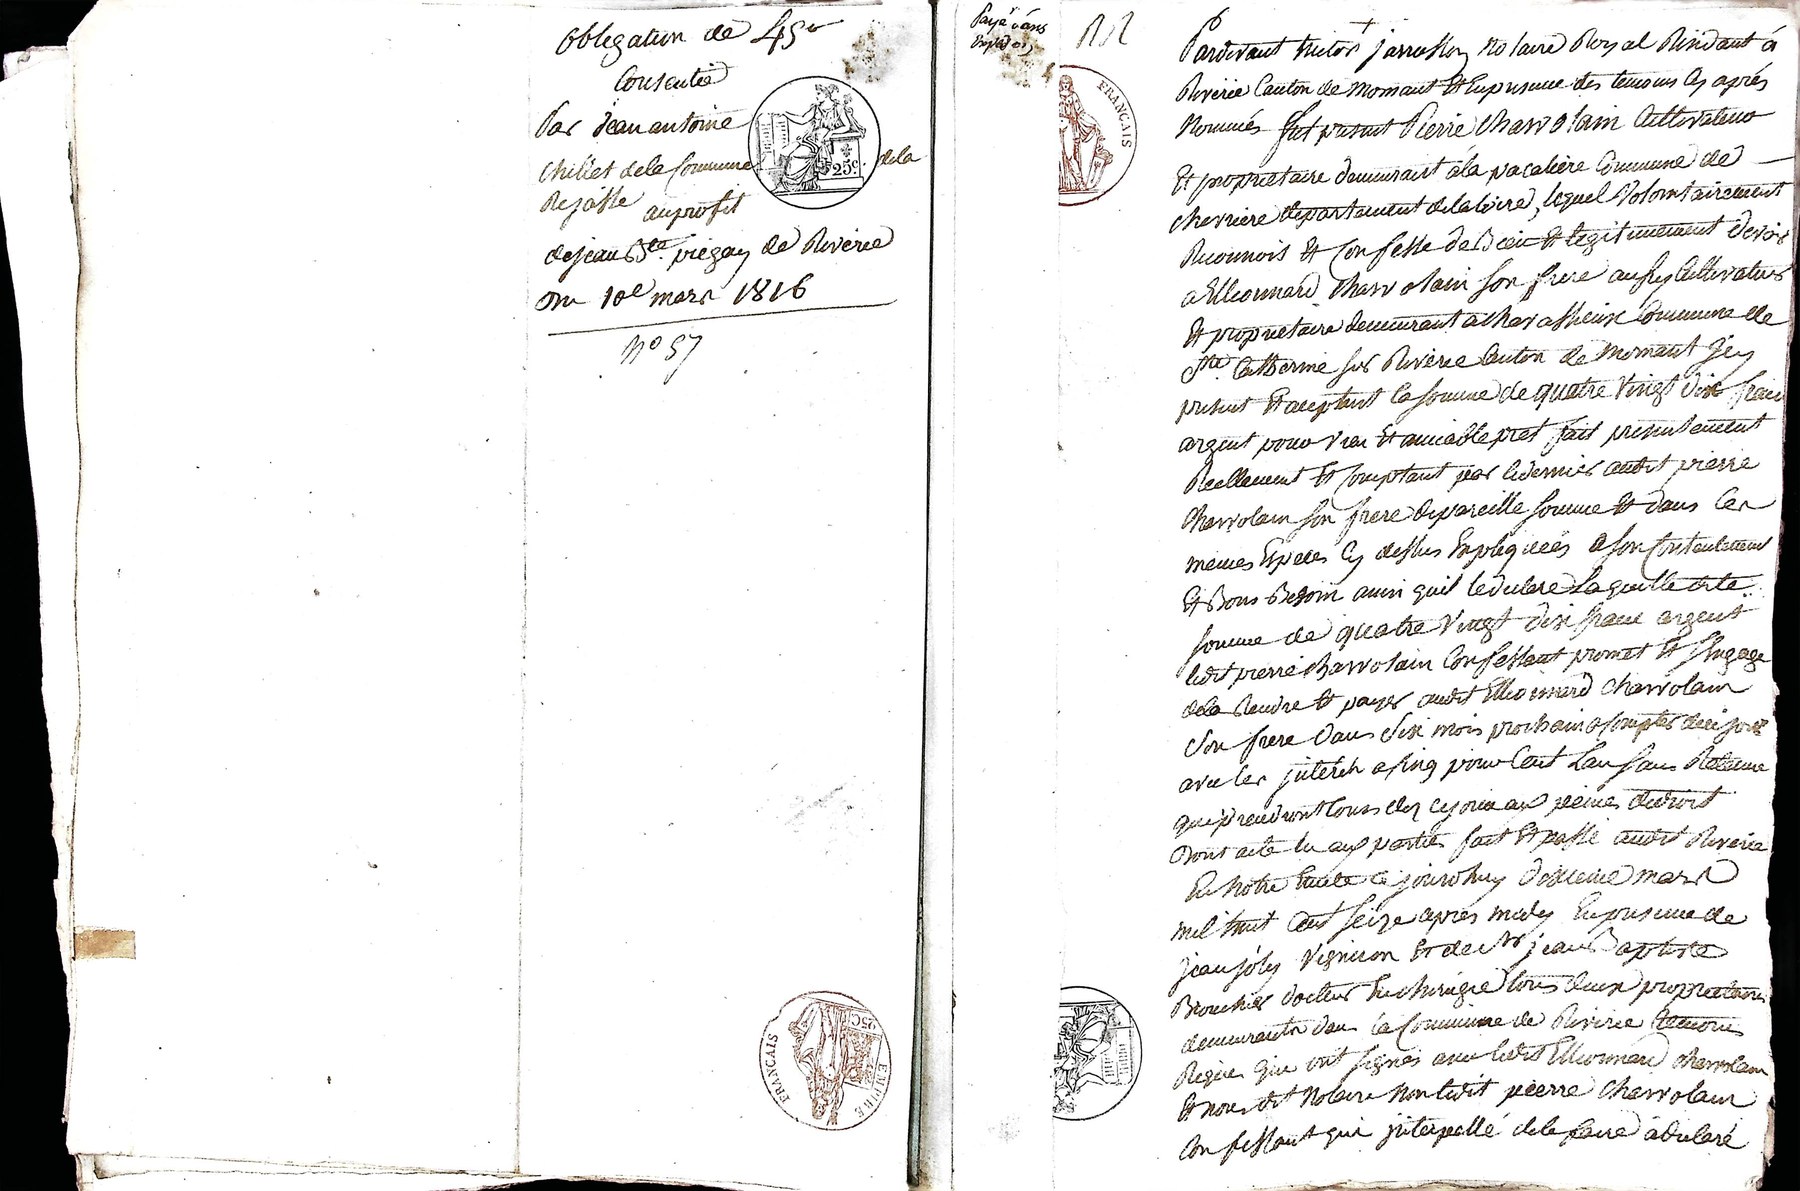 Obligation de 45 f
Consentie
Par jean antoine
chillet de la Commune de la
Rejasse au profit
de jean Bte. piegay de Riverie
Du 10e mars 1816
No 57
25c.
EMPIRE FRANÇAIS
25C
FRANÇAIS
Pardevant jarrosson notaire Royal Résidant à
Riverie Canton de Mornant Et En presence des temoins Cy après
Nommés fut present Pierre Charvolain Cultivateur
Et propriétaire demeurant à la vacalière Commune de
cheviere departement de la Loire, lequel Volontairement
Reconnois Et Confesse de Bien Et legitimement devoir
a Ellionnard Charvolain son frere aussy Cultivateur
Et propriétaire demeurant a charassieux Commune de
Ste. Catherine sur Riverie Canton de Mornant jcy
present Et aceptant la somme de quatre Vingt dix franc
argent pour vrai Et amiable pret fait presentement
Reellement Et Comptant par ledernier audit pierre
Charvolain son frere de pareille somme Et dans les
memes Especes Cy dessus Expliquées a son Contentement
Et Bons Besoin ainsi quil le declare Laquelle dite
somme de quatre Vingt dix franc argent
ledit pierre Charvolain Confessant promet Et sEngage
de la Rendre Et payer audit Ellionnard Charvolain
son frere dans six mois prochain a Compter de ce jour
avec les jnterets a sinq pour Cent Lan sans Retenue
qui prendront Cours dez ce jour aux peines de droit
Dont acte lu aux parties fait Et passé audit Riverie
En Notre Etude Ce jourdhuy dixieme mars
mil huit Cent seize après midy En presence de
jean joly Vigneron Et de Sr jean Baptiste
Brouchier docteur En chirurgie tous deux propriétaires
demeurants dans la Commune de Riverie temoins
Réquis qui ont signés avec ledit Ellionnard Charvolain
Et nous dit Notaire Non ledit pierre Charvolain
Confessant qui jnterpellé de le faire a declaré